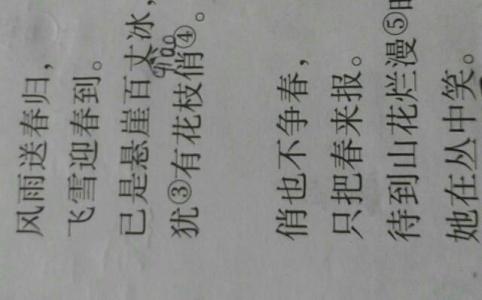 风雨送春归，
飞雪迎春到。
已是悬崖百丈冰，
犹③有花枝俏④。
俏也不争春，
只把春来报。
待到山花烂漫⑤时
她在丛中笑。